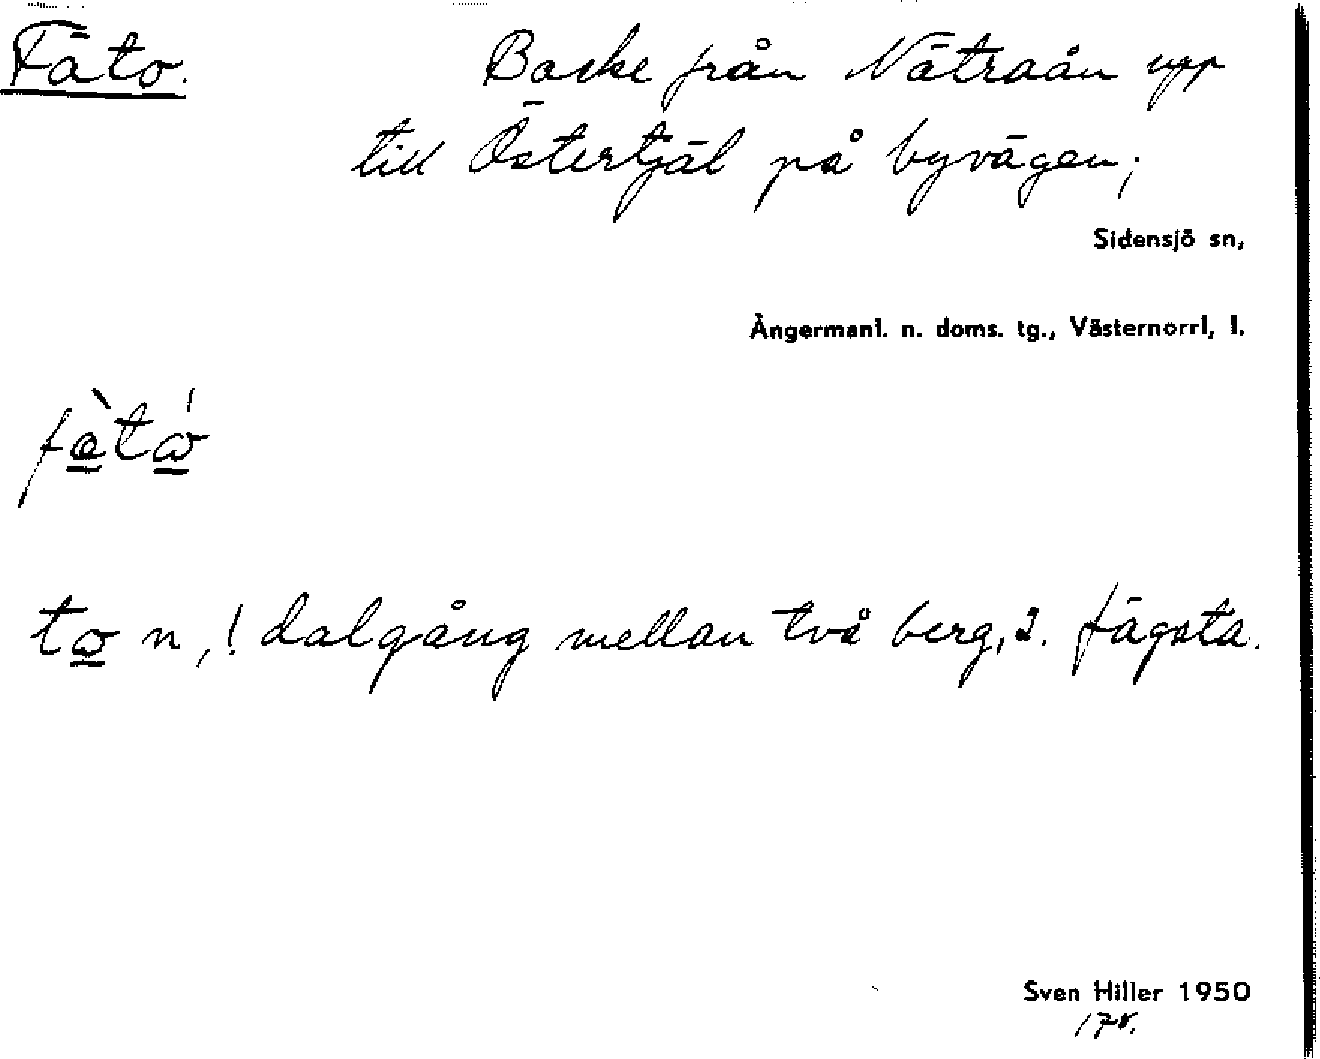 Fäto. Backe från Nätraån upp
till Östertjäl på byvägen;
Sidensjö sn,
Ångermanl. n. doms. tg., Västernorrl. l.
fæ̀tó
to n,! dalgång mellan två berg, i. fägata.
Sven Hiller 1950
178.